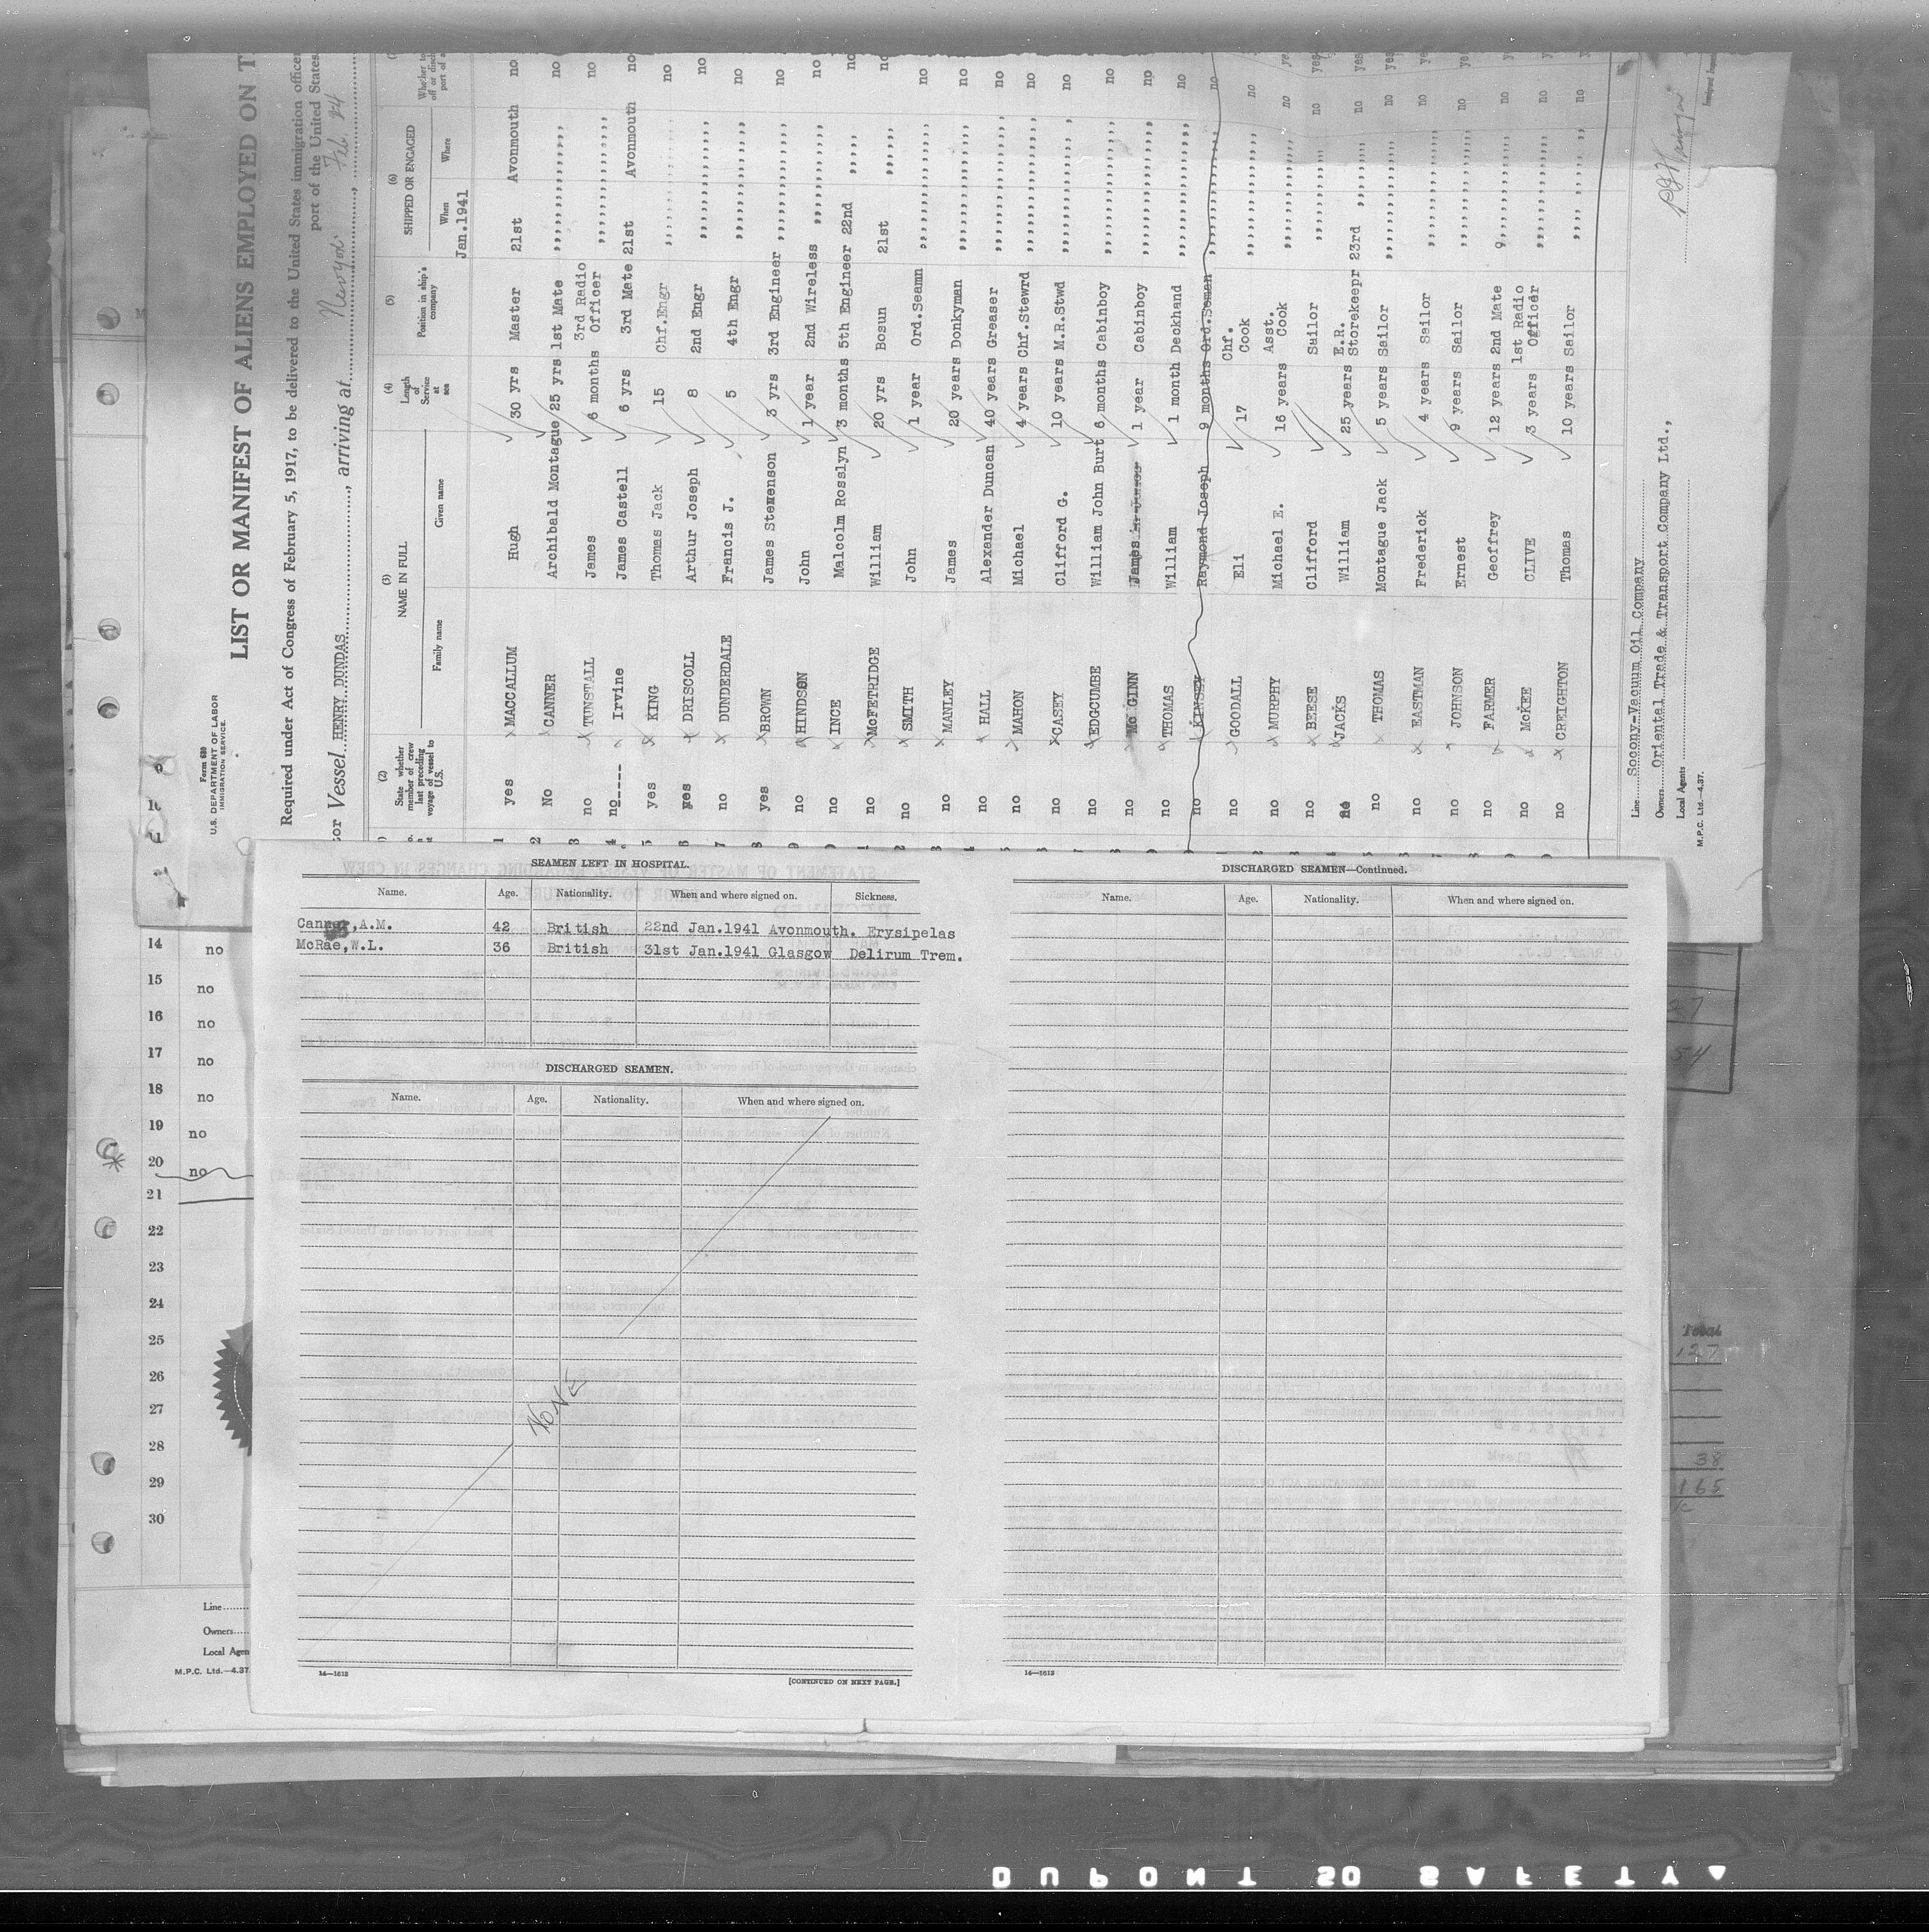 Form 680
U.S. DEPARTMENT OF LABOR
IMMIGRATION SERVICE.
LIST OR MANIFEST OF ALIENS EMPLOYED ON T
Required under Act of Congress of February 5, 1917, to be delivered to the United States immigration officer
port of the United States
Vessel HENRY DUNDAS, arriving at Feb. 24
(2) (3) (4) (5) (6)
State whether member of crew last preceding voyage of vessel to U.S. NAME IN FULL Length of Service at sea Position in ship's company SHIPPED OR ENGAGED
Family name Given name When Where
Jan.1941
1 yes MACCALLUM Hugh 30 yrs Master 21st Avonmouth no
2 No CANNER Archibald Montague 25 yrs 1st Mate ,,,,,,,,,,,, no
3 no TUNSTALL James 6 months 3rd Radio Officer ,,,,,,,,,,,, no
4 no---- Irvine James Castell 6 yrs 3rd Mate 21st Avonmouth no
5 yes KING Thomas Jack 15 Chf.Engr ,,,,,,,,,,,, no
6 yes DRISCOLL Arthur Joseph 8 2nd Engr ,,,,,,,,,,,, no
7 no DUNDERDALE Francis J. 5 4th Engr ,,,,,,,,,,,, no
8 yes BROWN James Stevenson 3 yrs 3rd Engineer ,,,,,,,,,,,, no
9 no HINDSON John 1 year 2nd Wireless ,,,,,,,,,, no
no INCE Malcolm Rosslyn 3 months 5th Engineer 22nd ,,,,, no
1 no McFETRIDGE William 20 yrs Bosun 21st ,,,,, no
2 no SMITH John 1 year Ord.Seamn ,,,,,,,,,,,, no
3 no MANLEY James 20 years Donkyman ,,,,,,,,,,,, no
no HALL Alexander Duncan 40 years Greaser ,,,,,,,,,,,, no
5 no MAHON Michael 4 years Chf.Stewrd ,,,,,,,,,,,, no
no CASEY Clifford G. 10 years M.R.Stwd ,,,,,,,,,,,, no
7 no EDGCUMBE William John Burt 6 months Cabinboy ,,,,,,,,,,,, no
8 no Mc GINN James 1 year Cabinboy ,,,,,,,,,,,, no
9 no THOMAS William 1 month Deckhand ,,,,,,,,,,,, no
no KINSEY Raymond Joseph 9 months Ord.Seman ,,,,,,,,,,,, no
1 no GOODALL Eli 17 Chf. Cook ,,,,,,,,,,,, no
2 no MURPHY Michael E. 16 years Asst. Cook ,,,,,,,,,,,, no
no BEESE Clifford Sailor ,,,,,,,,,,,, no yes
no JACKS William 25 years E.R. Storekeeper 23rd ,,,,, no yes
5 no THOMAS Montague Jack 5 years Sailor ,,,,,,,,,,,, no
no EASTMAN Frederick 4 years Sailor ,,,,,,,,,,,, no
7 no JOHNSON Ernest 9 years Sailor ,,,,,,,,,,,, no
no FARMER Geoffrey 12 years 2nd Mate ,,,,,,,,,,,, no
9 no McKEE CLIVE 3 years 1st Radio Officer ,,,,,,,,,,,, no
no CREIGHTON Thomas 10 years Sailor ,,,,,,,,,,,, no
Line Socony-Vacuum Oil Company
Owners Oriental Trade & Transport Company Ltd.,
Local Agents
M.P.C. Ltd.—4.37.
SEAMEN LEFT IN HOSPITAL.
Name. Age. Nationality. When and where signed on. Sickness.
Canner,A.M. 42 British 22nd Jan.1941 Avonmouth. Erysipelas
McRae,W.L. 36 British 31st Jan.1941 Glasgow Delirum Trem.
DISCHARGED SEAMEN.
Name. Age. Nationality. When and where signed on.
NONE
14—1612
[CONTINUED ON NEXT PAGE.]
DISCHARGED SEAMEN—Continued.
Name. Age. Nationality. When and where signed on.
14—1612
14 no
15 no
16 no
17 no
18 no
19 no
20 no
21
22
23
24
25
26
27
28
29
30
Line
Owners
Local Agen
M.P.C. Ltd.—4.37.
27
54
Total
127
38
165